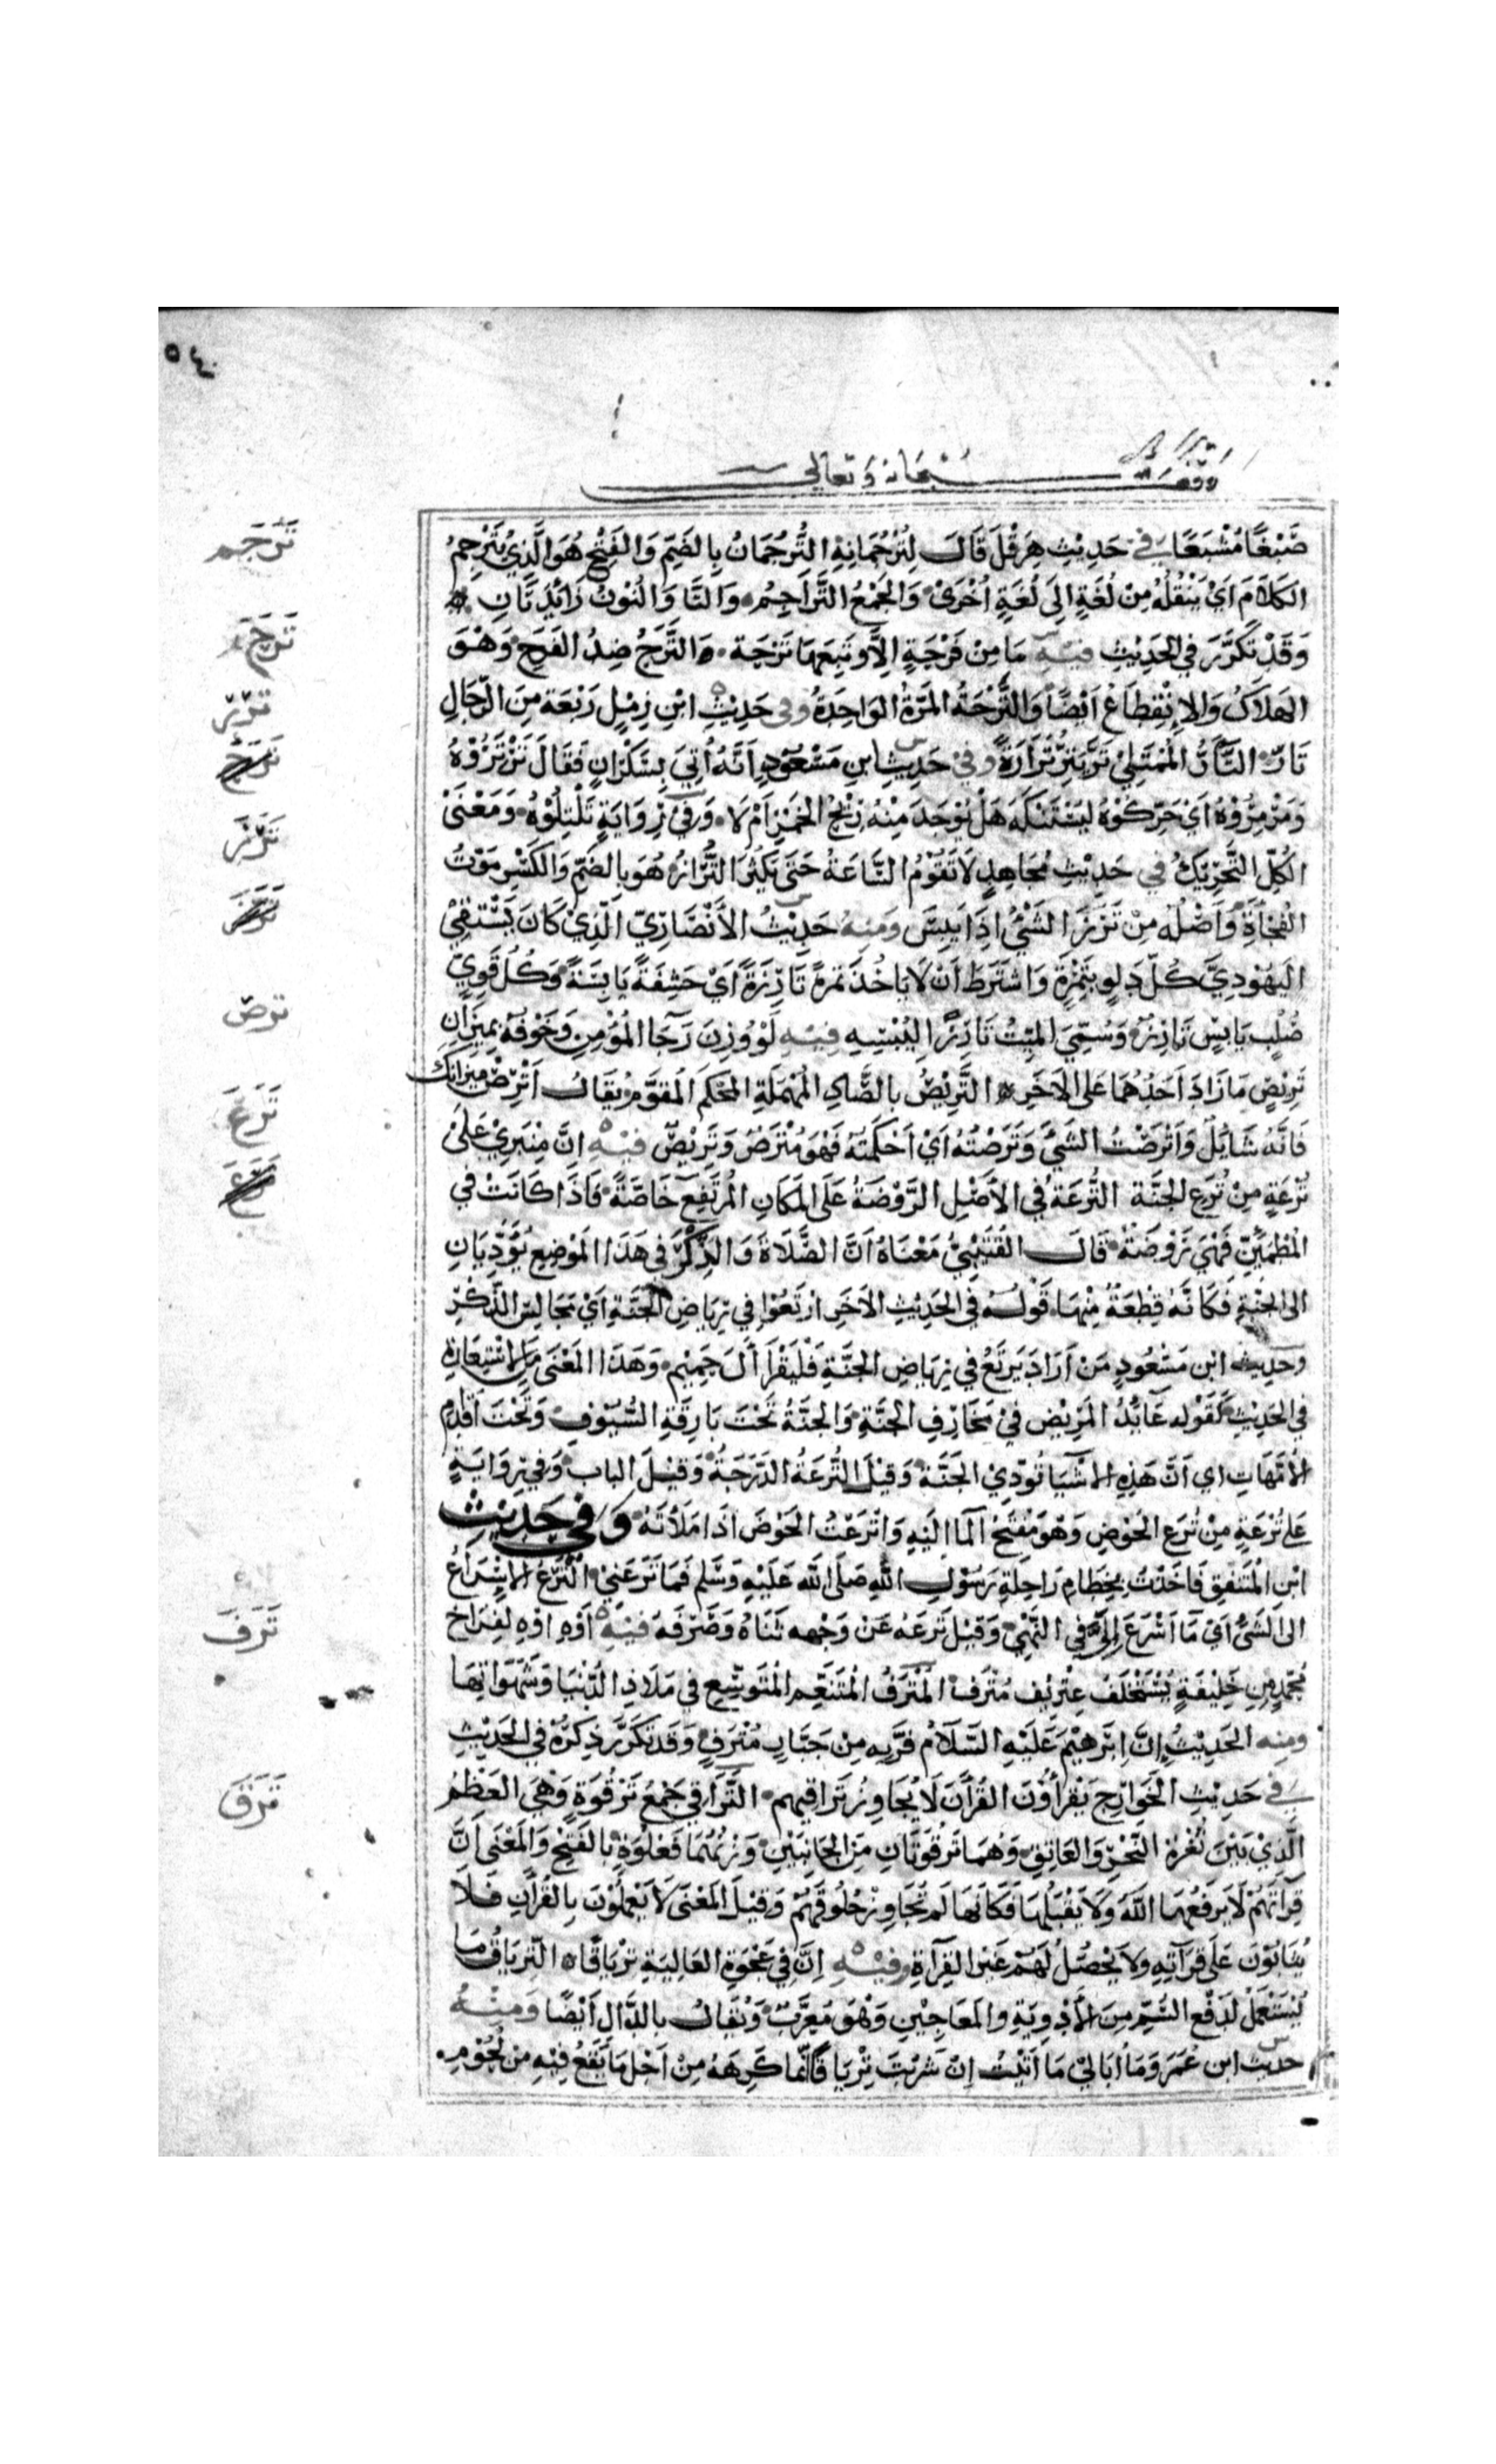 ٥٤
وقف لله سبحانه وتعالى
صَبْغًا مُشْبَعًا في حَدِيْثِ هِرَقْلَ قَالَ لِتُرْجُمَانِهِ التُّرْجُمَانُ بِالضَّمِّ وَالفَتْحِ هُوَ الَّذِيْ يُتَرْجِمُ
الكَلَامَ اَيْ يَنْقُلُهُ مِنْ لُغَةٍ اِلَى لُغَةٍ اُخْرَىْ وَالجَمْعُ التَّرَاجِمُ وَالتَّا وَالنُوْنُ زَائِدَتَانِ
وَقَدْ تَكَرَّرَ فِي الحَدِيْثِ فِيْهِ مَا مِنْ فَرْحَةٍ اِلَّا وَتَبِعَهَا تَرْحَة وَالتَّرَحُ ضِدُّ الفَرَحِ وَهْوَ
الهَلَاكُ وَالاِنْقِطَاعُ اَيْضًا وَالتَّرْحَةُ المَرَّةُ الوَاحِدَةُ وفي حَدِيْثِ ابْنِ زِمْلٍ رَبْعَة مِنَ الرِّجَالِ
تَارّ التَّارُّ المُمْتَلِئُ تَرَّ يَتِرُّ تَرَارَةً وفي حَدِيْثِ ابنِ مَسْعُوْدٍ اَنَّهُ اُتِيَ بِسَكْرَانٍ فَقَالَ تَرْتِرُوْهُ
وَمَزْمِزُوْهُ اَيْ حَرِّكُوْهُ لِيُسْتَنْكَهَ هَلْ يُوْجَدَ مِنْهُ رِيْحُ الخَمْرِ اَمْ لَا وَفِيْ رِوَايَةٍ تَلْتِلُوْهُ وَمَعْنَىْ
الكُلِّ التَّحْرِيْكُ في حَدِيْثِ مُجَاهِدٍ لَا تَقُوْمُ السَّاعَةُ حَتَّى يَكْثُرَ التُّرَازُ هُوَ بِالضَّمِّ وَالكَسْرِ مَوْتُ
الفُجَأَةِ وَاَصْلُهُ مِنْ تَرَزَ الشَّيْءُ اِذَا يَبِسَ وَمِنهُ حَدِيْثُ الاَنْصَارِيّ الَّذِيْ كَانَ يَسْتَقِيْ
لِيَهُوْدِيَّ كُلَّ دَلوٍ بِتَمْرَةٍ وَاشْتَرَطَ اَنْ لَا يَاخُذَ تَمرَةً تَارِزَةً اَيْ حَشِفَةً يَابِسَةً وَكُلُّ قَوِيٍّ
صُلْبٍ يَابِسٍ تَارِزٌ وَسُمِّيَ المَيِّتُ تَارِزًا لِيُبْسِهِ فِيْهِ لَوْ وُزِنَ رَجَا المُؤْمِنِ وَخَوْفُهُ بِمِيْزَانِ
تَرِيْصٍ مَا زَادَ اَحَدُهُمَا عَلَى الاَخَرِ التَّرِيْصُ بِالصَّادِ المُهْمَلَةِ المُحْكَم المُقوَّم يُقَالُ اَتْرِصْ مِيْزَانَكَ
فَاِنَّهُ شَائِلٌ وَاَتْرَصْتُ الشَّيْءَ وَتَرَصْتُهُ اَيْ اَحْكَمْتُهُ فَهْوَ مُتْرَصٌ وَتَرِيْصٌ فِيْهِ اِنَّ مِنْبَرِيْ عَلَىْ
تُرْعَةٍ مِنْ تُرَعِ الجَنَّة التُّرْعَةُ فِي الاَصْلِ الرَّوْضَةُ عَلَى المَكَانِ المُرْتَفِعِ خَاصَّةً فَاِذَا كَانَتْ فِي
المُطْمَئِنِّ فَهْيَ رَوْضَةٌ قَالَ القُتَيْبِيُّ مَعْنَاهُ اَنَّ الصَّلَاةَ وَالذِّكْرَ فِي هَذَا المَوْضِعِ يُؤَدِّيَانِ
الى الجَنَّةِ فَكَانَّهُ قِطْعَةٌ مِنْهَا قَوْلُهُ فِي الحَدِيْثِ الاَخَرِ ارْتَعُوْا فِي رِيَاضِ الجَنَّةِ اَيْ مَجَالِسِ الذِّكْرِ
وَحَدِيث ابْنِ مَسْعُودٍ مَنْ اَرَادَ يَرتَعُ فِي رِيَاضِ الجَنَّةِ فَلْيَقْرَأ اَلَ حَمِيْم وَهَذَا المَعْنَى مِنَ الاسْتِعَارَةِ
فِي الحَدِيْثِ كَقَوْلِهِ عَائِدُ المَرِيْض فِيْ مَخَارِفِ الجَنَّةِ وَالجَنَّةُ تَحْتَ بَارِقَةِ السُّيُوْفِ وَتَحْتَ اَقْدَامِ
الاُمَّهَاتِ اي اَنَّ هَذِهِ الاشْيَا تُوَدِّيْ الجَنَّة وَقِيْلَ التُّرْعَةُ الدَّرَجَةُ وَقِيْلَ الباب وَفِي رِوَايَةٍ
عَلَى تُرْعَةٍ مِنْ تُرَعِ الحَوْضِ وَهْوَ مَفْتَحُ المَا اِلَيْهِ وَاَتْرَعْتُ الحَوْضَ اذَا مَلَأْتَهُ وَفي حَدِيْثِ
ابْنِ المُنْتَفِقِ فَاَخَذْتُ بِخِطَامِ رَاحِلَةِ رَسُوْلِ اللهِ صَلَّى الله عَلَيْهِ وَسَّلم فَمَا تَرَعَنِيْ التَّرَعُ الاِسْرَاعُ
الى الشَّيْءِ اَيْ مَا اَسْرَعَ اِلَيَّ فِي النَّهْيِ وَقِيْلَ تَرَعَهُ عَنْ وَجْهِه ثَنَاهُ وَصَرَفَهُ فِيْهِ اَوْهِ اوْهِ لِفِرَاخِ
مُحَمَّدٍ مِن خَلِيْفَةٍ يُسْتَخْلَفُ عِتْرِيْف مُتْرَف المُتْرَفُ المُتَنَعِّم المُتَوَسِّعِ فِي مَلَاذِ الدُّنْيَا وَشَهَوَاتِهَا
وَمِنه الحَدِيْثُ اِنَّ اِبْرَهِيْمَ عَلَيْهِ السَّلَامُ فُرَّ بِهِ مِنْ جَبَّارٍ مُتْرَفٍ وَقَد تَكَرَّرَ ذِكْرُهُ فِي الحَدِيْثِ
في حَدِيْثِ الخَوَارِج يَقْرَأُوْنَ القُرْأَنَ لَا يُجَاوِزُ تَرَاقِيهم التَّرَاقِي جَمْعُ تَرْقُوَةٍ وَهْيَ العَظْمُ
الَّذِيْ بَيْنَ ثُغْرَةِ النَّحْرِ وَالعَاتِقِ وَهُمَا تَرْقُوَتَانِ مِنَ الجَانِبَيْنِ وَزْنُهُمَا فَعْلُوَةٍ بِالفَتْحِ وَالمَعْنَى اَنَّ
قِرَاتَهُمْ لَا يَرفَعُهَا اللهُ وَلَا يَقْبَلُهَا فَكَانَّهَا لَم تُجَاوِزْ حُلُوْقَهُمْ وَقِيْلَ المَعْنَى لَا يَعْمَلُوْنَ بِالقُرْأَنِ فَلَا
يُثَابُوْنَ عَلَى قِرَآتِهِ وَلَا يَحْصُلُ لَهُمْ غَيْرُ القِرَآةِ وَفِيْهِ اِنَّ فِي عَجْوَةِ العَالِيَةِ تِرْيَاقًا التِّرْيَاقُ مَا
يُسْتَعْمَلُ لِدَفْعِ السُّمِّ مِنَ الاَدْوِيَةِ وَالمَعَاجِيْنِ وَهْوَ مُعَرَّبٌ وَيُقَالُ بِالدَّالِ اَيْضًا وَمِنْهُ
حديث ابن عُمَرَ وَمَا اُبَالِيْ مَا اَتَيْتُ اِنْ شَرِبْتَ تِرْيَاقًا اِنَّمَا كَرِهَهُ مِنْ اَجْلِ مَا يَقَعُ فِيْهِ مِنْ لُحُوْمِ
تَرْجَم
تَرَحَ
تَرَرَ
تَرَزَ
تَرَصَ
تَرَعَ
تَرَفَ
تَرَقَ